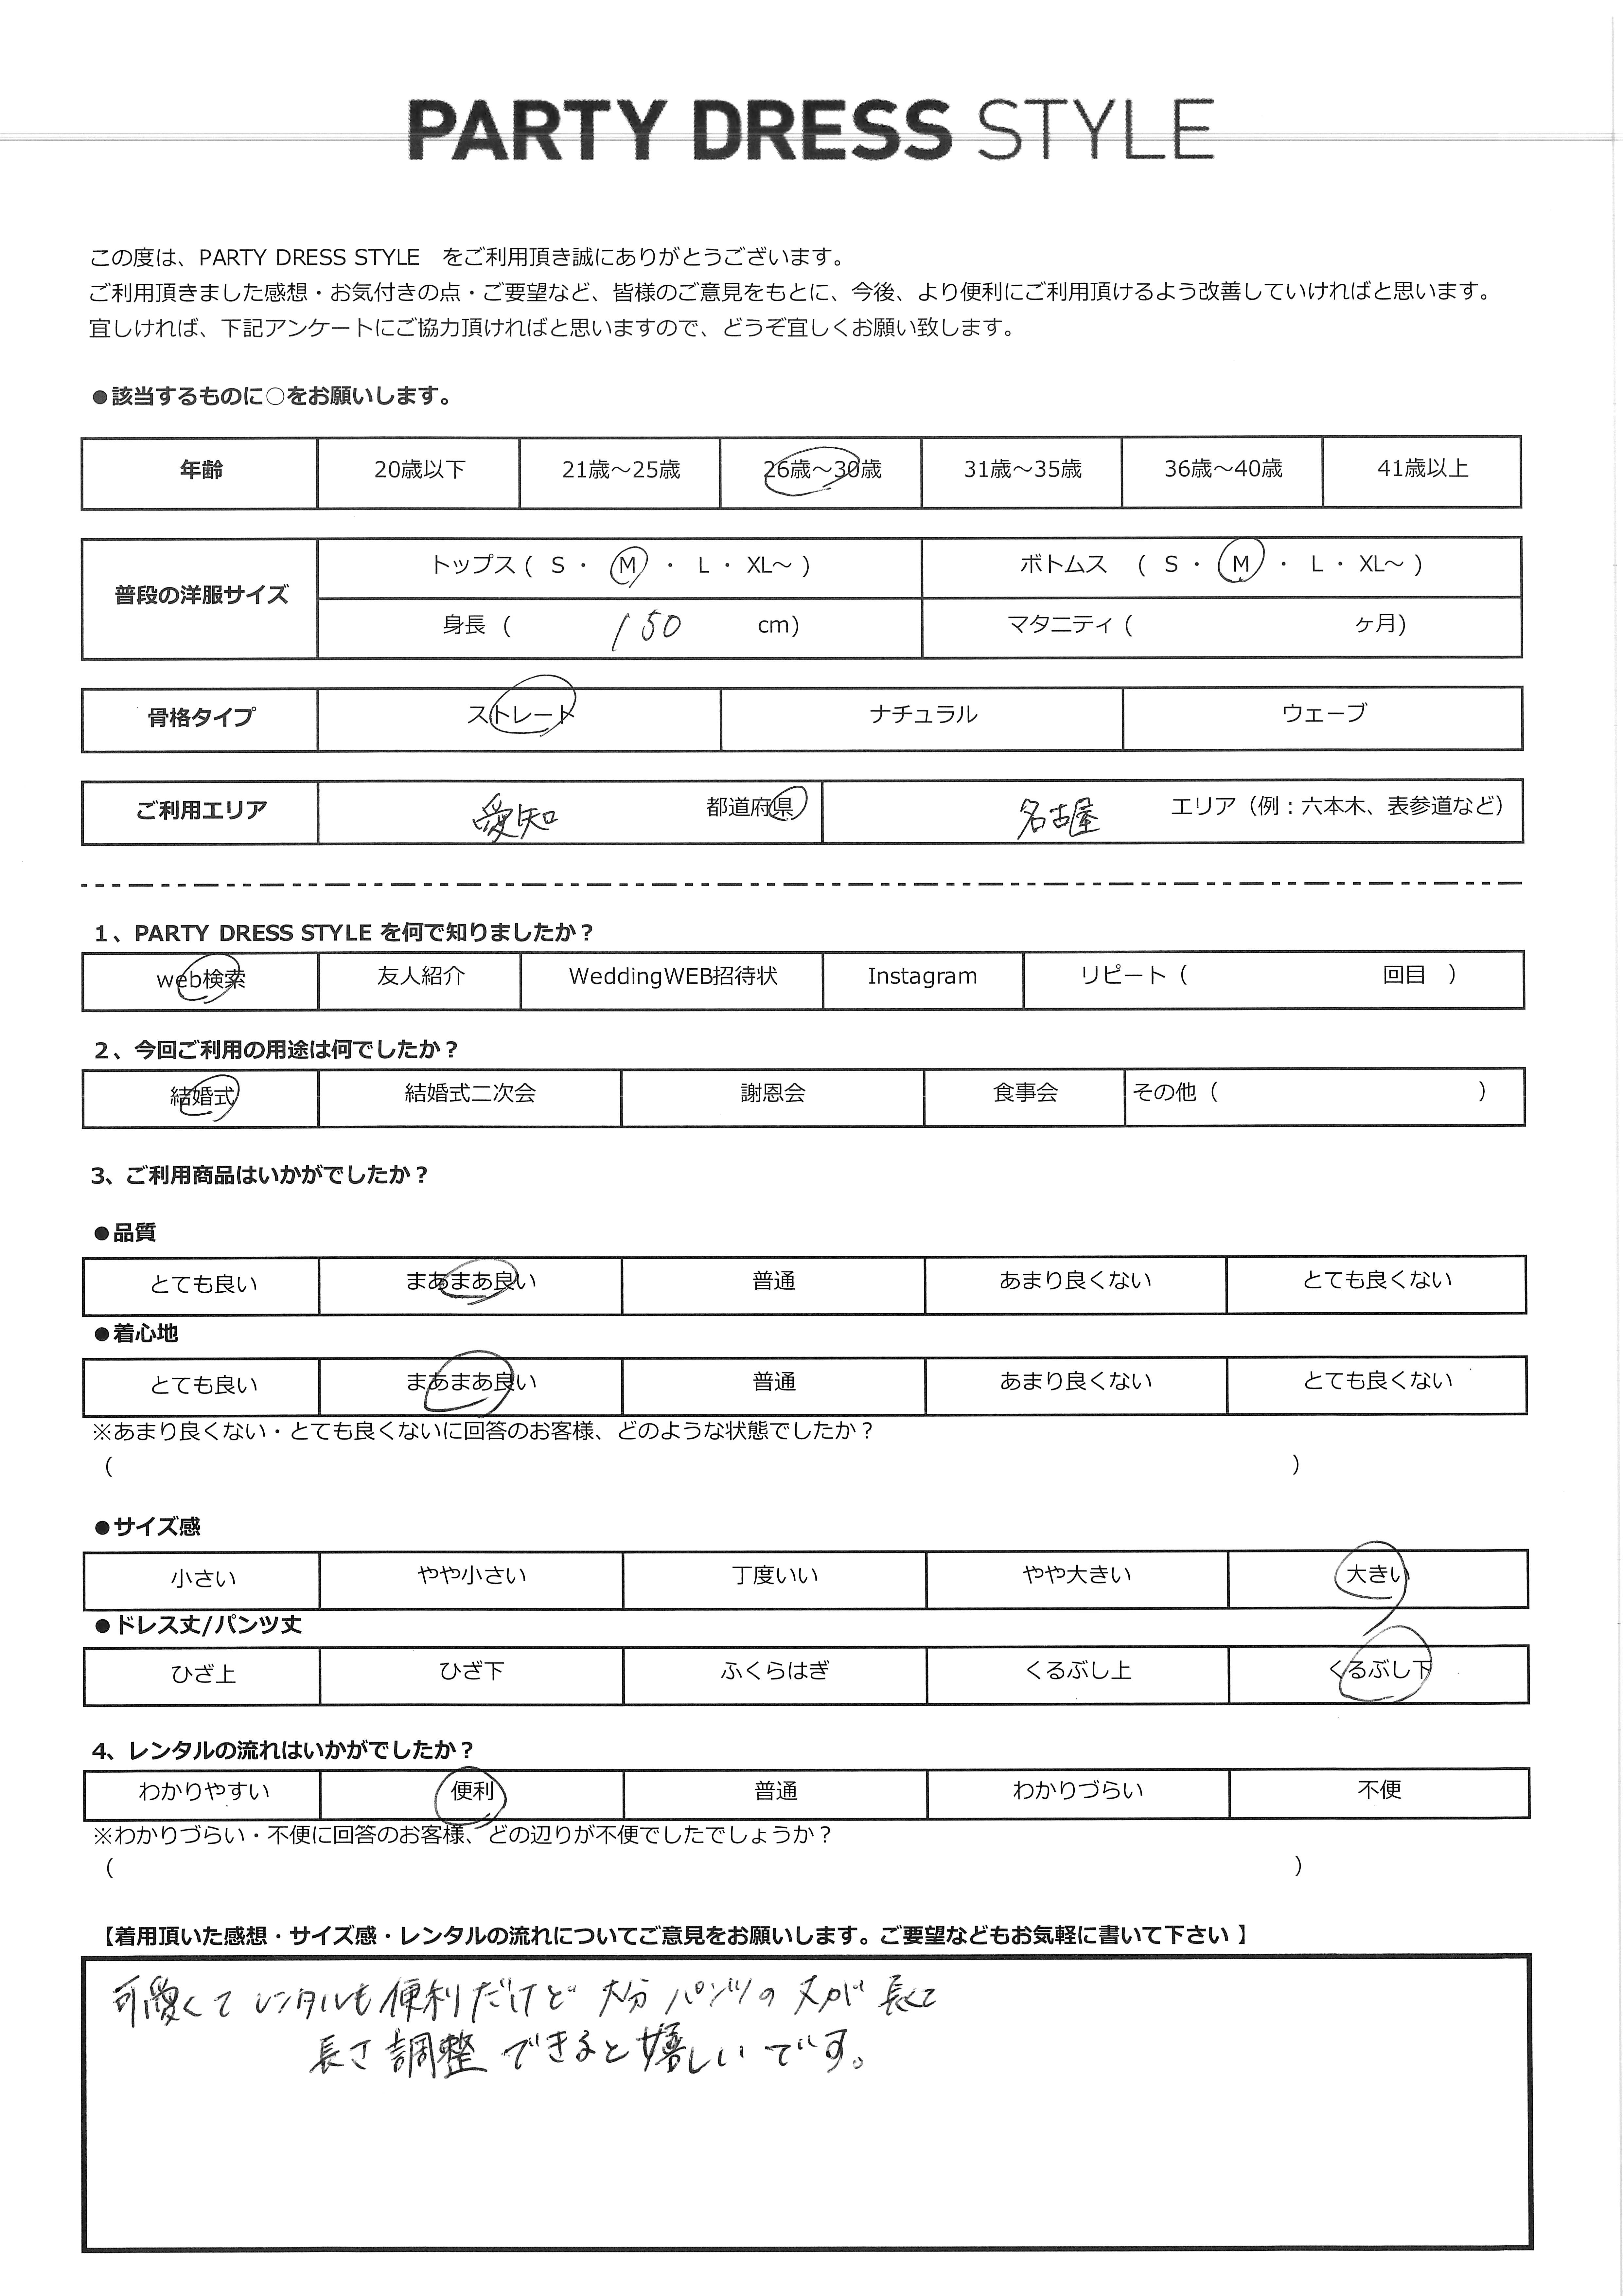 PARTY DRESS STYLE
この度は、PARTY DRESS STYLE　をご利用頂き誠にありがとうございます。
ご利用頂きました感想・お気付きの点・ご要望など、皆様のご意見をもとに、今後、より便利にご利用頂けるよう改善していければと思います。
宜しければ、下記アンケートにご協力頂ければと思いますので、どうぞ宜しくお願い致します。
●該当するものに○をお願いします。
年齢 20歳以下 21歳～25歳 26歳～30歳 31歳～35歳 36歳～40歳 41歳以上
普段の洋服サイズ
トップス ( S ・ M ・ L ・ XL～ ) ボトムス ( S ・ M ・ L ・ XL～ )
身長 ( 150 cm) マタニティ ( ヶ月)
骨格タイプ ストレート ナチュラル ウェーブ
ご利用エリア 愛知 都道府県 名古屋 エリア（例：六本木、表参道など）
1、PARTY DRESS STYLE を何で知りましたか？
web検索 友人紹介 WeddingWEB招待状 Instagram リピート（ 回目 ）
2、今回ご利用の用途は何でしたか？
結婚式 結婚式二次会 謝恩会 食事会 その他（ ）
3、ご利用商品はいかがでしたか？
●品質
とても良い まあまあ良い 普通 あまり良くない とても良くない
●着心地
とても良い まあまあ良い 普通 あまり良くない とても良くない
※あまり良くない・とても良くないに回答のお客様、どのような状態でしたか？
（ ）
●サイズ感
小さい やや小さい 丁度いい やや大きい 大きい
●ドレス丈/パンツ丈
ひざ上 ひざ下 ふくらはぎ くるぶし上 くるぶし下
4、レンタルの流れはいかがでしたか？
わかりやすい 便利 普通 わかりづらい 不便
※わかりづらい・不便に回答のお客様、どの辺りが不便でしたでしょうか？
（ ）
【着用頂いた感想・サイズ感・レンタルの流れについてご意見をお願いします。ご要望などもお気軽に書いて下さい 】
可愛くてレンタルも便利だけど 大分 パンツの 丈が 長くて
長さ調整 できると嬉しいです。